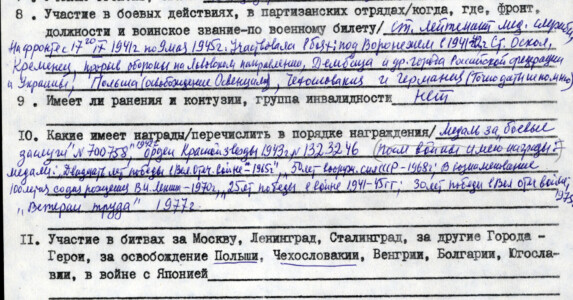 8. Участие в боевых действиях, в партизанских отрядах/когда, где, фронт,
должности и воинское звание-по военному билету/ Ст. лейтенант мед. службы
На фронте с 17 1941г по 9 мая 1945г. Участвовала в боях: под Воронежем в 1941-42г Ст. Оскол,
Кременец, прорыв обороны на Львовском направлении, Дембица и др. города Российской федерации
и Украины, Польша (освобождение Освенцима), Чехословакия и Германия (Точно даты не помню)
9. Имеет ли ранения и контузии, группа инвалидности Нет
10. Какие имеет награды/перечислить в порядке награждения/ Медаль за боевые
заслуги" N700758" орден Красной звезды 1943г N1323246 (после войны имею награды:
медали: "Двадцать лет победы в Вел. Отеч. войне-1965г", 50 лет вооруж. сил СССР-1968г; В ознаменование
100летия со дня рождения В.И. Ленина-1970г, "25 лет победы в войне 1941-45гг; 30 лет победы в Вел отеч войне,
1975г
"Ветеран труда" 1977г.
11. Участие в битвах за Москву, Ленинград, Сталинград, за другие Города -
Герои, за освобождение Польши, Чехословакии, Венгрии, Болгарии, Югосла-
вии, в войне с Японией